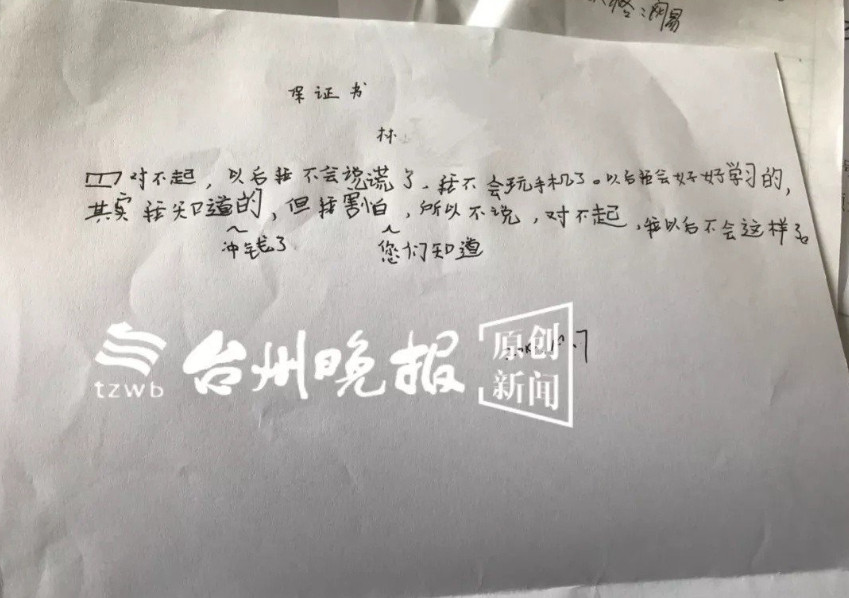 ：网易
保证书
林
对不起，以后我不会说谎了，我不会玩手机了。以后我会好好学习的，
其实我知道的，但我害怕，所以不说，对不起，我以后不会这样了。
冲钱了 您们知道
tzwb 台州晚报 原创
新闻